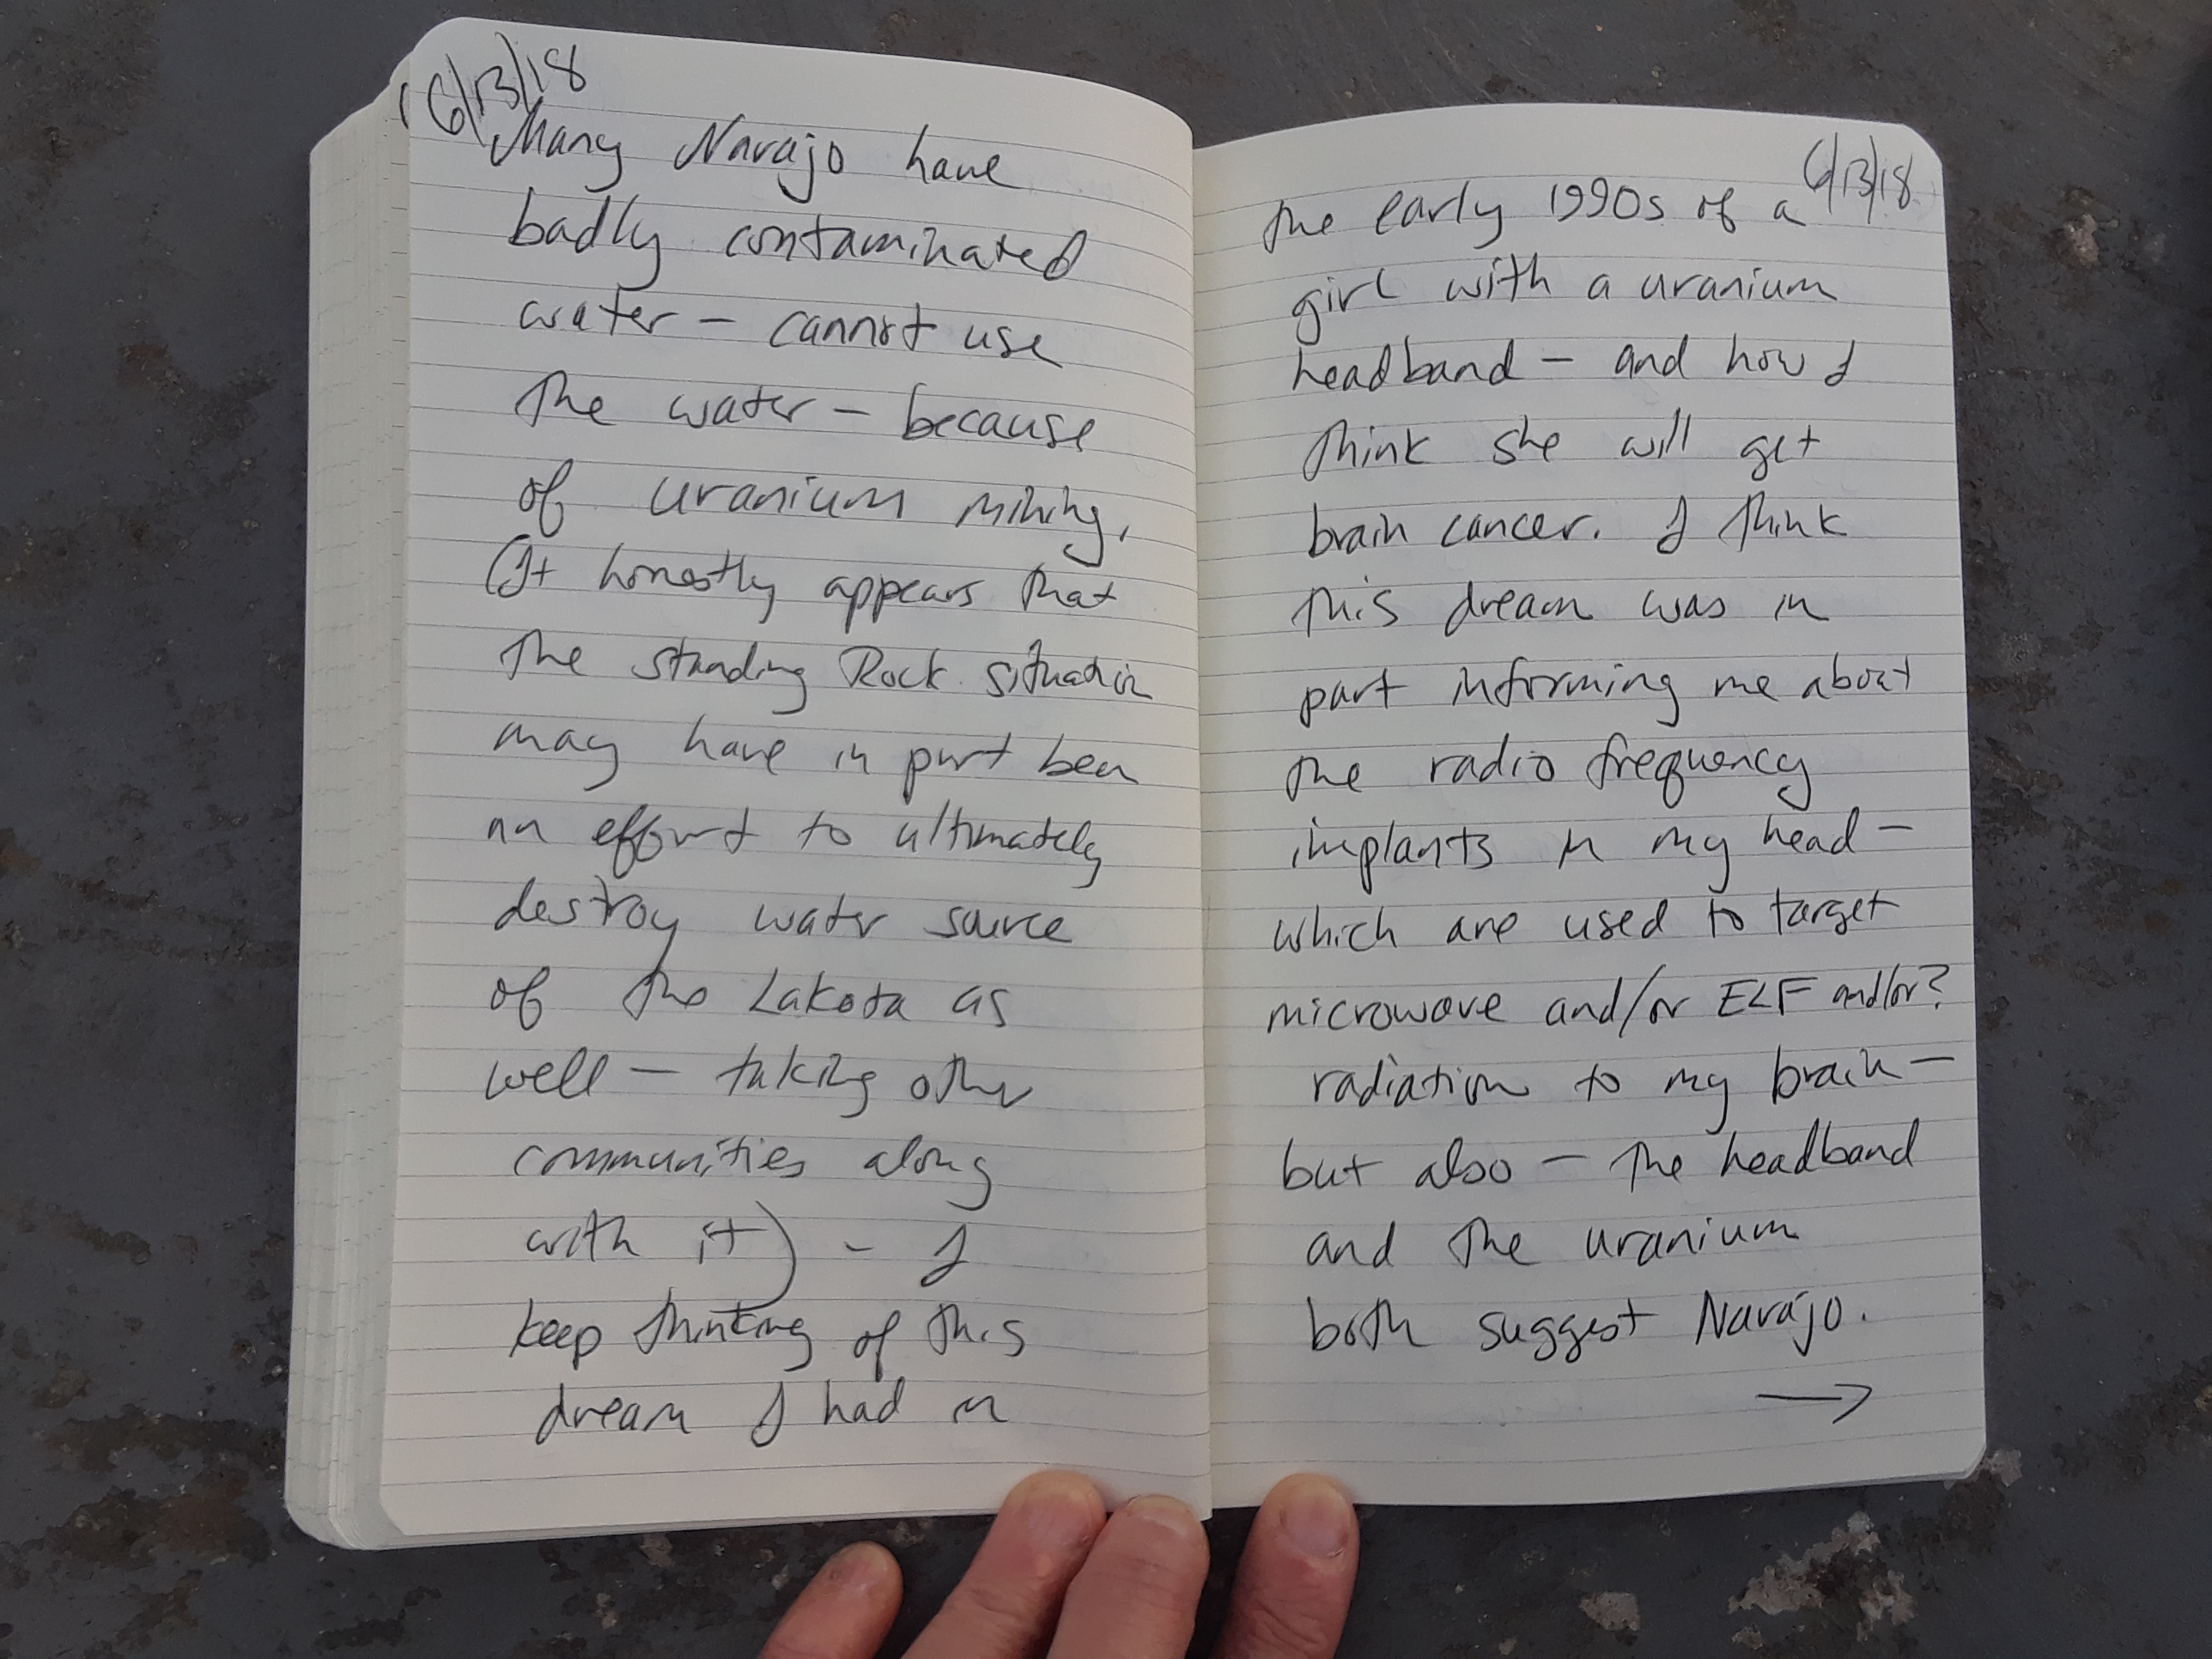 6/13/18
Many Navajo have
badly contaminated
water – cannot use
the water – because
of uranium mining.
(It honestly appears that
the Standing Rock situation
may have in part been
an effort to ultimately
destroy water source
of the Lakota as
well – taking other
communities along
with it) – I
keep thinking of this
dream I had in
6/13/18
the early 1990s of a
girl with a uranium
headband – and how I
think she will get
brain cancer. I think
this dream was in
part informing me about
the radio frequency
implants in my head –
which are used to target
microwave and/or ELF and/or?
radiation to my brain –
but also – the headband
and the uranium
both suggest Navajo.
→